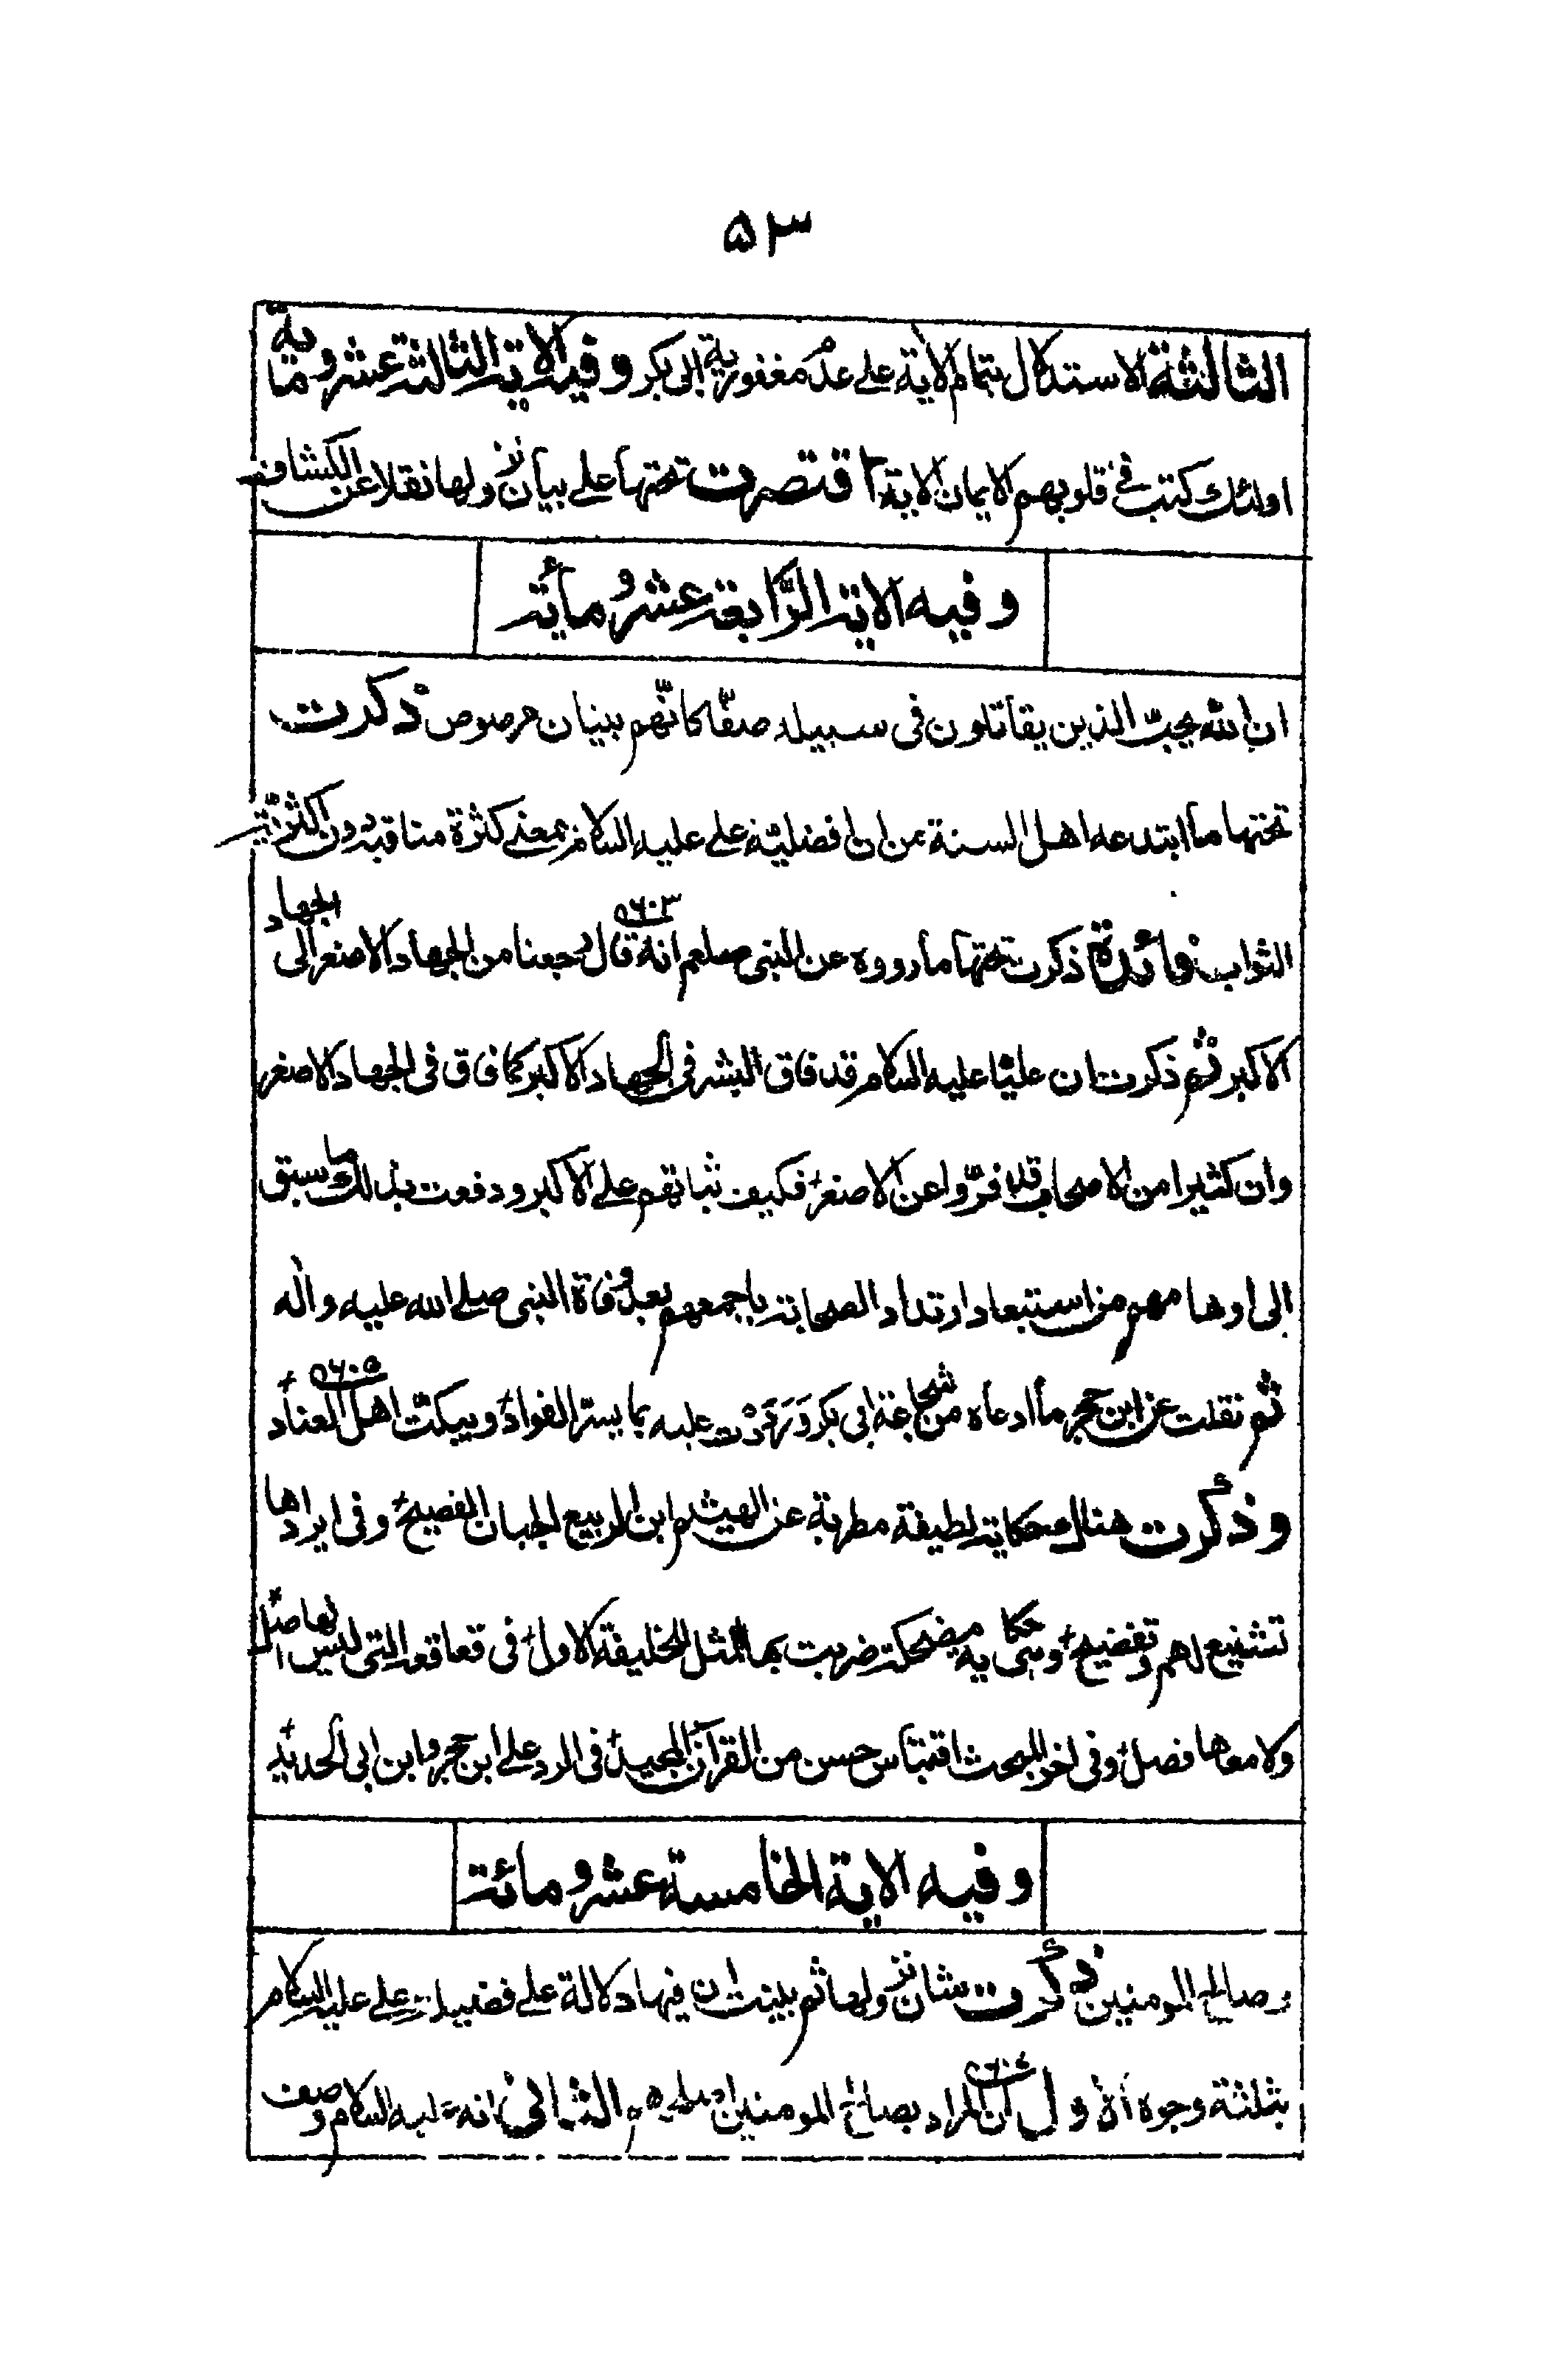 ۵۳
الثالثة الاستدلال بتمام الاية على عدم مغفورية ابى بكر وفيه الاية الثالثة عشر ومایة
اولئك كتب فى قلوبهم الايمان الاية اقتصرت تحتها على بيان نزولها نقلا عن الكشاف
وفيه الاية الرابعة عشر ومأية
ان الله يحبّ الذين يقاتلون فى سبيله صفّا كانّهم بنيان مرصوص ذكرت
تحتها ما ابتدعه اهل السنة من ان افضليّة على عليه السلام بمعنى كثرة مناقبه دون اكثريّة
الثواب فائدة ذكرت تحتها ما رووه عن النبى صلعم انه قال رجعنا من الجهاد الاصغر الى الجهاد
۵۶۰۳
الاكبر ثم ذكرت ان عليّا عليه السلام قد فاق البشر فى الجهاد الاكبر كما فاق فى الجهاد الاصغر
وان كثيرا من الاصحاب قد فرّوا عن الاصغر فكيف ثباتهم على الاكبر ودفعت بذلك ما سبق
الى اوهامهم من استبعاد ارتداد الصحابة باجمعهم بعد وفاة النبى صلى الله عليه واله
ثم نقلت عن ابن حجر ما ادعاه من شجاعة ابى بكر وَرَدَدْت عليه بما يسرّ الفواد ويبكت اهل العناد
۵۶۰۵
وذكرت هنالك حكاية لطيفة مطربة عن الهيثم ابن الربيع الجبان الفصيح وفى ايرادها
تشنيع لهم وتفضيح وهى حكاية مضحكة ضربت بها المثل للخليفة الاول فى قعاقعه التى ليس لها اصل
ولا معها فصل وفى اخر المبحث اقتباس حسن من القرآن المجيد فى الرد على ابن حجر وابن ابى الحديد
وفيه الاية الخامسة عشر ومائة
وصالح المومنين ذكرت شان نزولها ثم بينت ان فيها دلالة على فضيلة على عليه السلام
بثلثة وجوه الاول ان المراد بصالح المومنين الثانى انه عليه السلام وصف